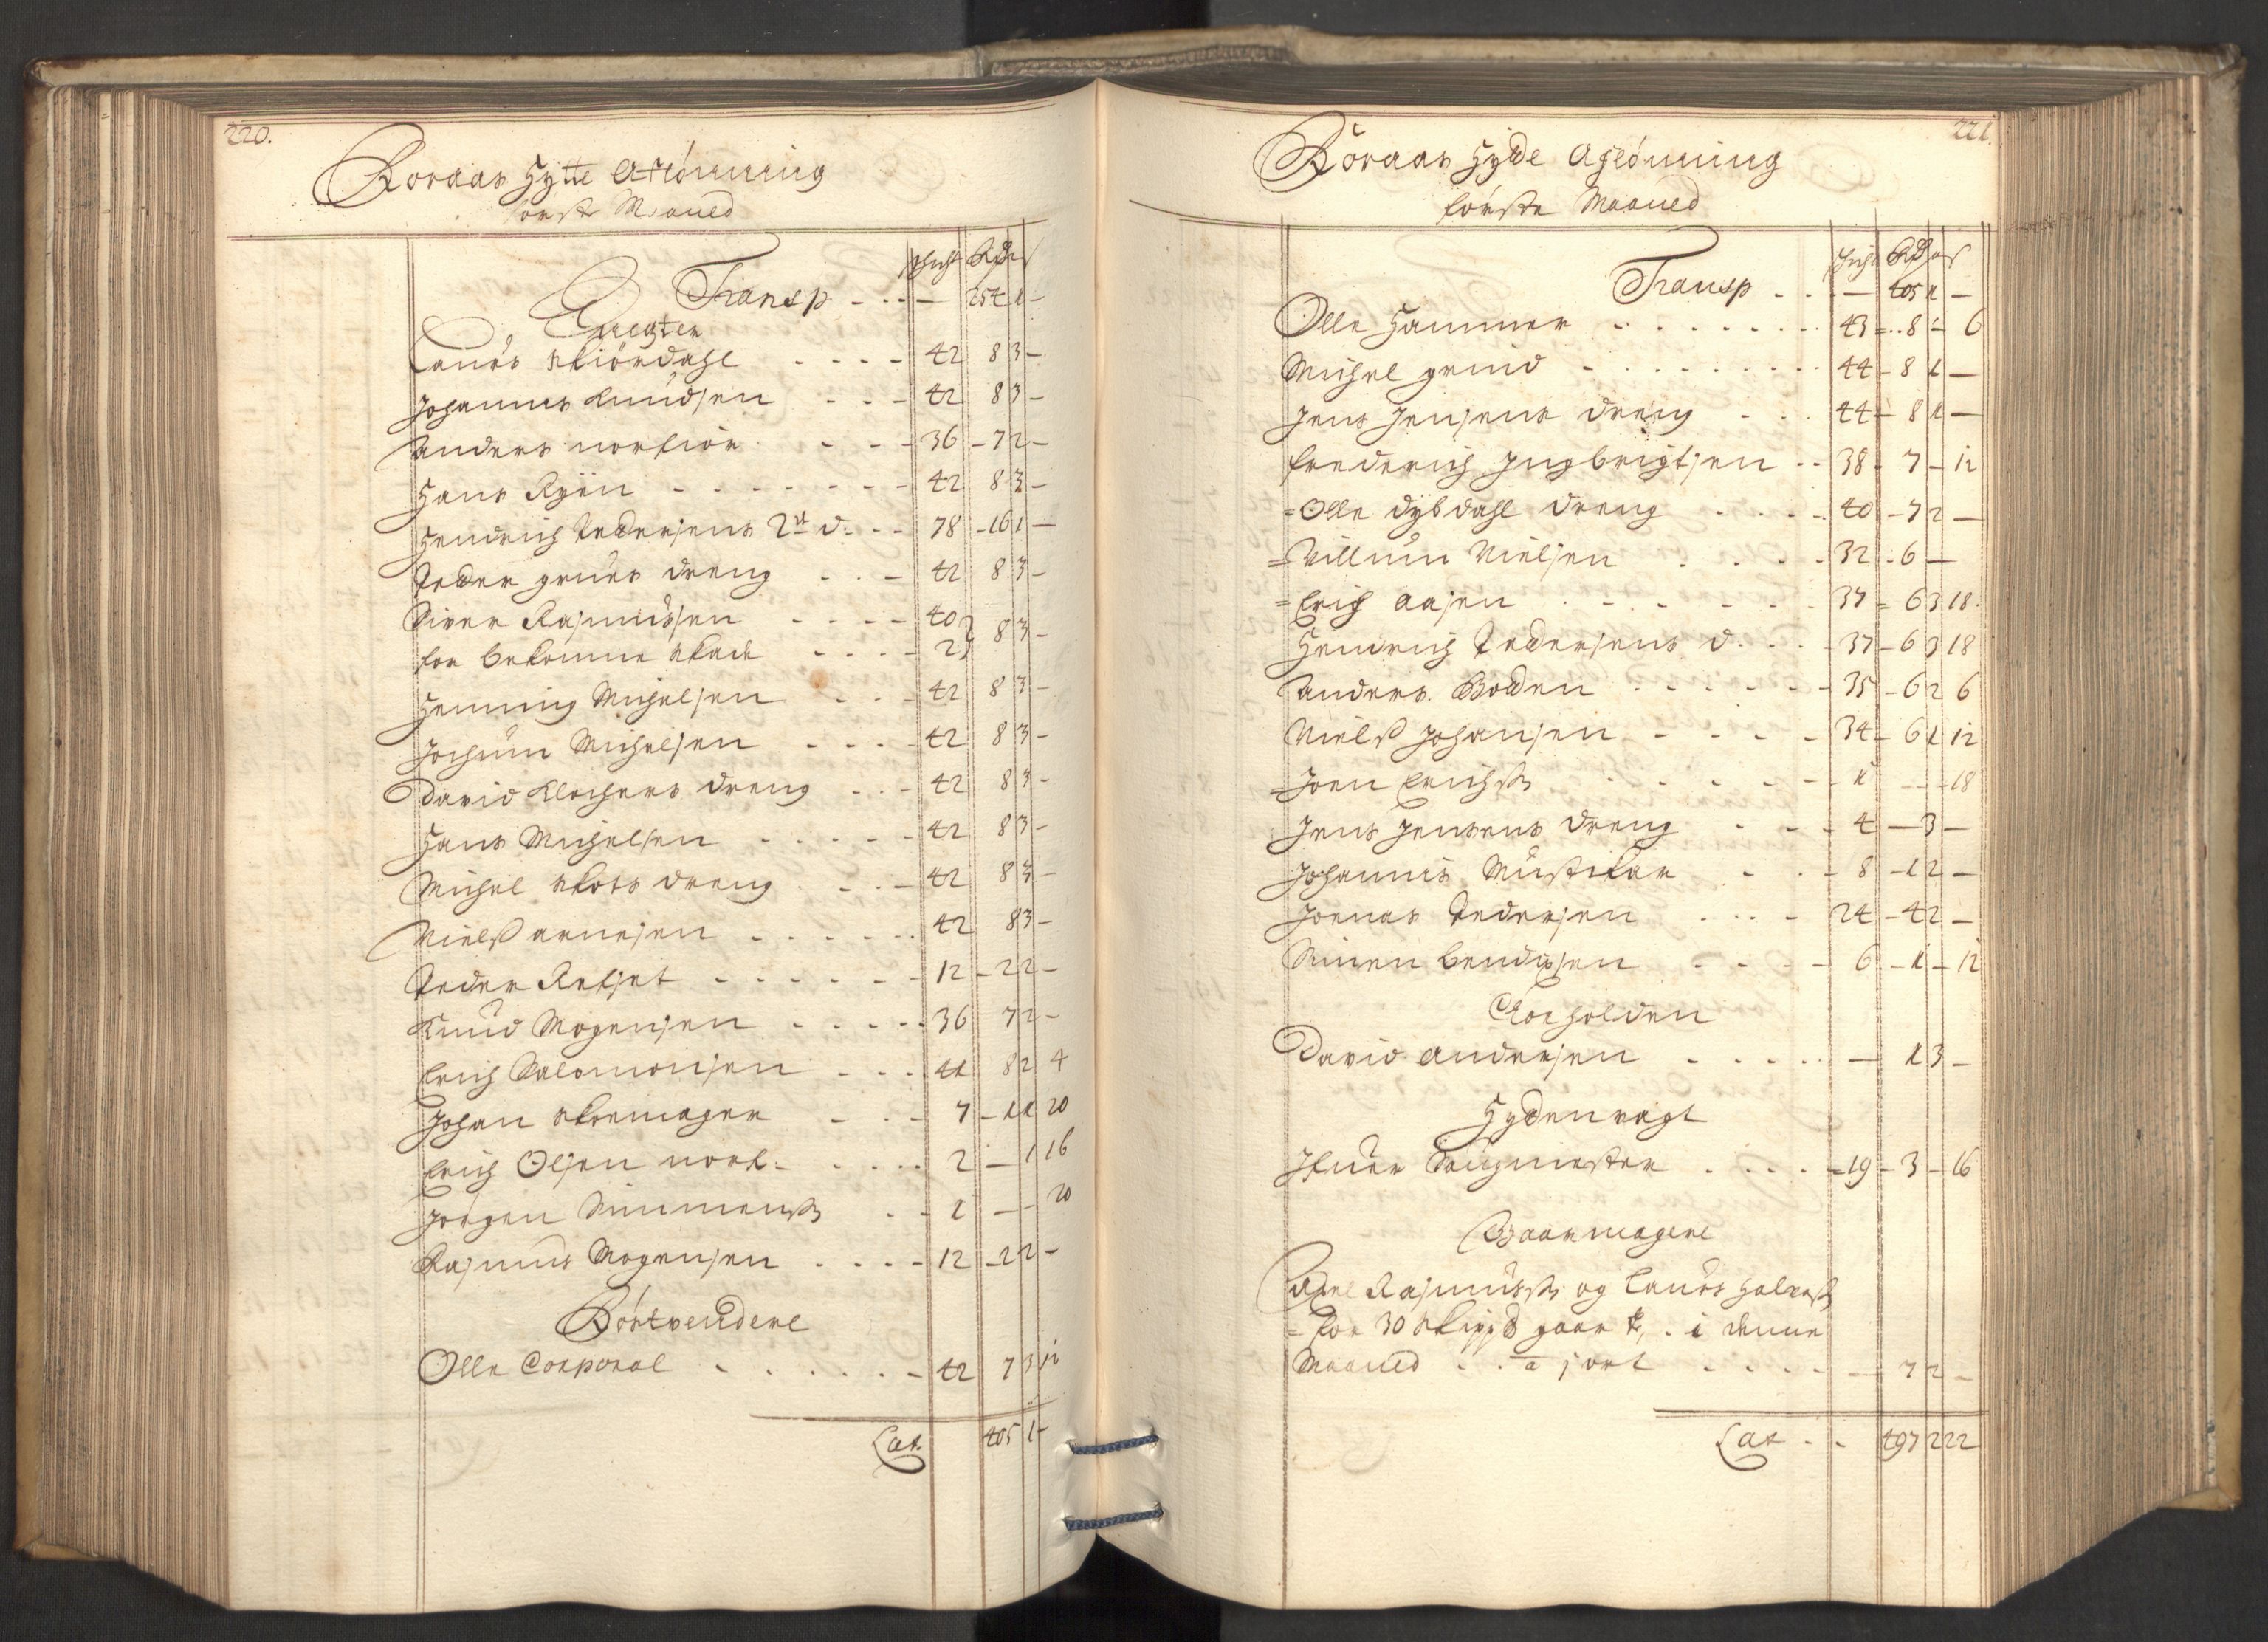 220.
Röraas Hytte Aflönning
förste Maaned
Schicht Rdr ort s
Transp - - - — 254 1 —
Knegter
Laurs Stiördahl - - - - 42 8 3 —
Johannes Knudsen - - - 42 8 3 —
Anders norfiör - - - 36 - 7 2 —
Hans Ryen - - - - - - - 42 8 3 —
Hendrich Pedersens 2de d: - - 78 - 16 1 —
Peder grues dreng - - - 42 8 3 —
Siver Rasmussen - - - - 40
for bekomne skade - - - - 2 8 3 —
Henning Michelsen - - - 42 8 3 —
Jochum Michelsen - - - - 42 8 3 —
David Klochers dreng - - - 42 8 3 —
Hans Michelsen - - - - - 42 8 3 —
Michel skots dreng - - - 42 8 3 —
Nielss arnesen - - - - - - 42 8 3 —
Peder Refset - - - - - - 12 - 2 2 —
Knud Mogensen - - - - - 36 7 2 —
Erich Salomonsen - - - 41 8 2 4
Johan skomager - - - 7 - 1 1 20
Erich Olsen nork - - - - - 2 — 1 16
Jörgen Simmenss - - 1 — — 20
Rasmus Mogensen - - - - 12 - 2 2 —
Röstvendere
Olle Corporal - - - - - - 42 7 3 12
Lat. 405 1 —
221.
Röraas Hyde Aflönning
förste Maaned
Schicht Rdr ort s
Transp - - - — 405 1 —
Olle Hammer - - - - - - - - 43 - 8 — 6
Michel grind - - - - - - - - - 44 - 8 1 —
Jens Jensens dreng - - - 44 - 8 1 —
frederich Ingbrigtsen - - 38 - 7 — 12
Olle dybdahl dreng - - - - - 40 - 7 2 —
Villum Nielsen - - - - 32 - 6 —
Erich aasen - - - - - - - 37 - 6 3 18
Hendrich Pedersens d. - - 37 - 6 3 18
Anders Bolden - - - - - - 35 - 6 2 6
Nielss Johansen - - - - - 34 - 6 1 12
Joen Erichss - - - - - - 1 — — 18
Jens Jensens dreng - - - 4 — 3 —
Johannes Musticar - - - 8 - 1 2 —
Joenas Pedersen - - - - 24 - 4 2 —
Simen bendixsen - - - - 6 - 1 — 12
Roeholden
David andersen - - - - - — 1 3 —
Hydenvagt
Ifuer Saugmester - - - - - 19 - 3 — 16
Gaarmagere
Axel Rasmuss og Laurs halvorss
for 30 skippd gaar k. i denne
Maaned - - a j ort - - - - — 7 2 —
Lat - - 497 2 22